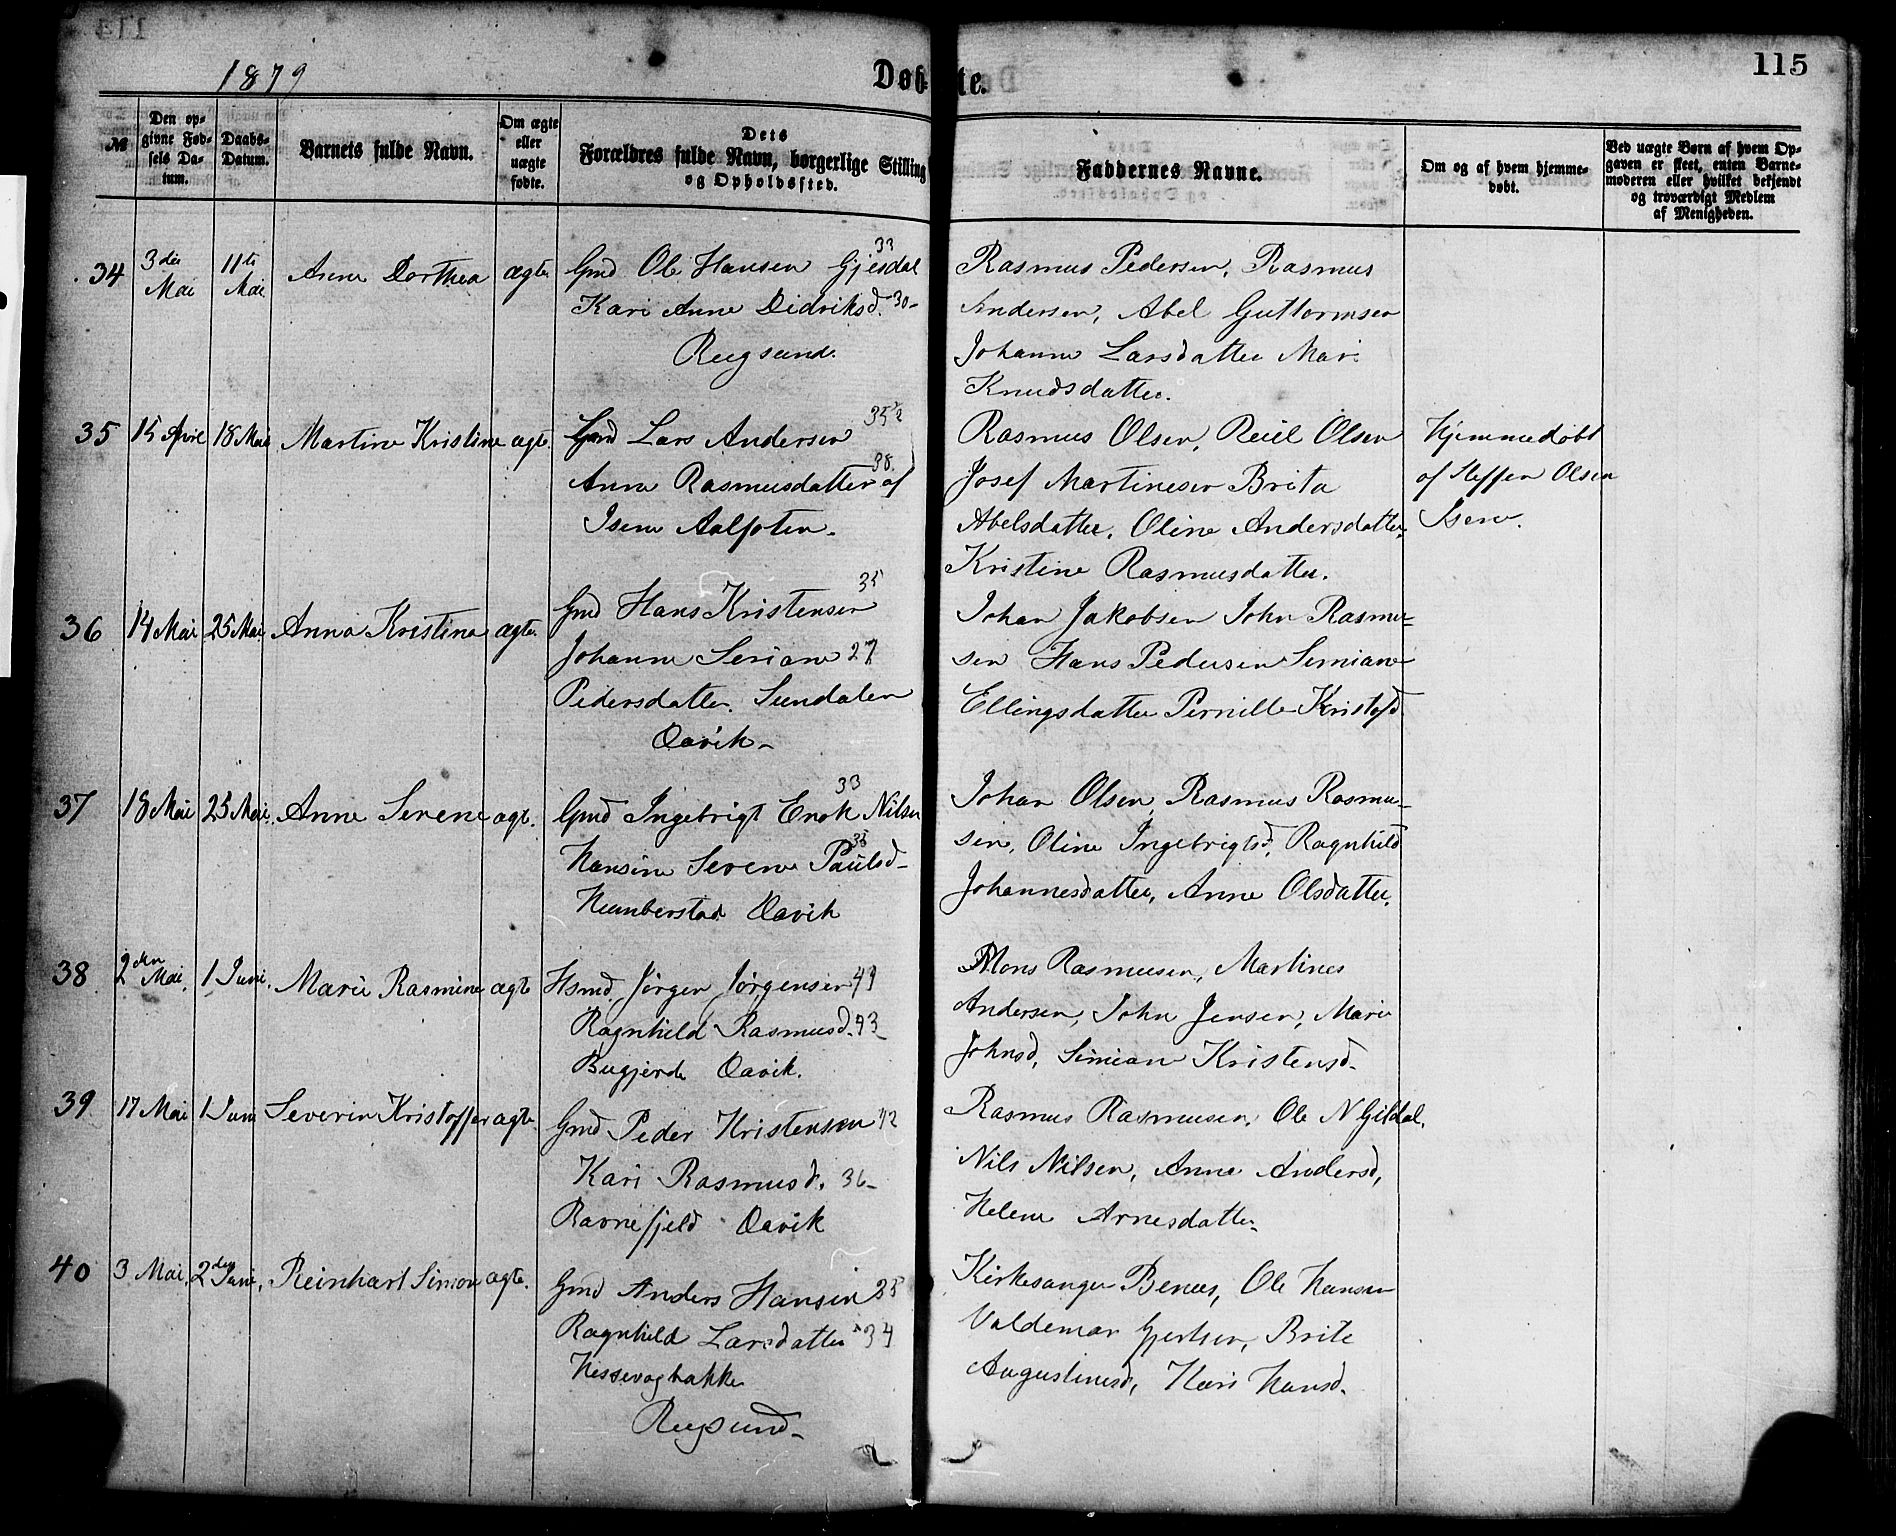 1879 Døbte. 115
№ Den opgivne Fødsels Datum. Daabs-Datum. Barnets fulde Navn. Om ægte eller uægte fødte. Dets Forældres fulde Navn, borgerlige Stilling og Opholdssted. Faddernes Navne. Om og af hvem hjemmedøbt. Ved uægte Børn af hvem Opgaven er skeet, enten Barnemoderen eller hvilket bekjendt og troværdigt Medlem af Menigheden.
34 3die Mai 11te Mai Anne Dorthea ægte Gmd Ole Hansen Gjesdal 33
Kari Anne Didriksd. 30-
Rugsund.
Rasmus Pedersen, Rasmus
Andersen, Abel Guttormsen
Johanne Larsdatter Mari
Knudsdatter.
35 15 April 18 Mai Martine Kristine ægte. Gmd Lars Andersen 35½
Anne Rasmusdatter af 38.
Isene Aalfoten.
Rasmus Olsen, Reiel Olsen
Josef Martinesen Brita
Abelsdatter. Oline Andersdatter.
Kristine Rasmusdatter.
Hjemmedøbt
af Steffen Olsen
Isene.
36 14 Mai 25 Mai Anna Kristina ægte. Gmd Hans Kristensen 35
Johanne Seriane 27
Pedersdatter. Sundalen
Davik-
Johan Jakobsen John Rasmu-
sen Hans Pedersen Simiane
Ellingsdatter Pernille Kristofd
37 18 Mai 25 Mai. Anne Serene ægt. Gmd Ingebrigt Enok Nilsen 33
Hansine Serene Paulsd- 35
Humberstad Davik
Johan Olsen, Rasmus Rasmu-
sen, Oline Ingebrigtsd, Ragnhild
Johannesdatter, Anne Olsdatter.
38 2den Mai. 1 Juni. Marie Rasmine ægte Hsmd. Jørgen Jørgensen 41
Ragnhild Rasmusd. 43-
Bugjerde Davik.
Mons Rasmusen, Martines
Andersen, John Jensen, Marie
Johnsd, Simiane Kristensd-
39 17 Mai 1 Juni Severin Kristoffer ægte. Gmd Peder Kristensen 42
Kari Rasmusd. 36-
Ravnefjeld Davik
Rasmus Rasmusen, Ole N Gildal.
Nils Nilsen, Anne Andersd,
Helene Arnesdatter
40 3 Mai. 2den Juni. Reinhart Simon ægte. Gmd Anders Hansen 25
Ragnhild Larsdatter 34
Hessevagbakke
Rugsund-
Kirkesanger Benæs, Ole Hansen
Valdemar Gjertsen, Brite
Augustinusd, Kari Hansd.